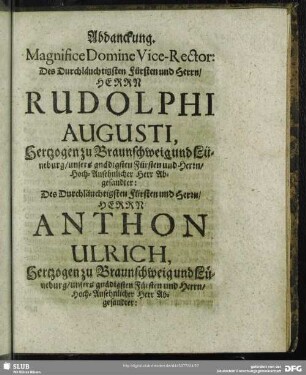 Abdanckung.
Magnifice Domine Vice-Rector:
Des Durchläuchtigsten Fürsten und Herrn/
HERRN
RUDOLPHI
AUGUSTI,
Hertzogen zu Braunschweig und Lü-
neburg/unsers gnädigsten Fürsten und Herrn/
Hoch-Ansehnlicher Herr Ab-
gesandter:
Des Durchläuchtigsten Fürsten und Herrn/
HERRN
ANTHON
ULRICH,
Hertzogen zu Braunschweig und Lü-
neburg/unsers gnädigsten Fürsten und Herrn/
Hoch-Ansehnlicher Herr Ab-
gesandter:
SLUB
DFG